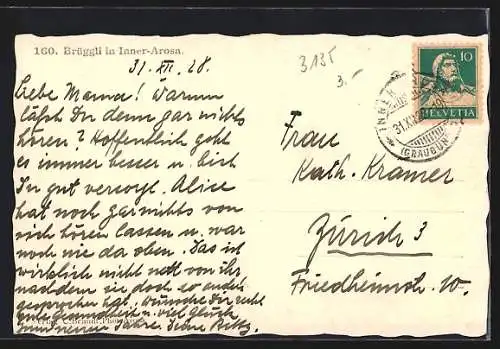 160. Brüggli in Inner-Arosa.
31. XII. 28.
Liebe Mama! Warum
läßt Du denn gar nichts
hören? Hoffentlich geht
es immer besser u. bist
Du gut versorgt. Alice
hat noch gar nichts von
sich hören lassen u. war
noch nie da oben. Das ist
wirklich nicht nett von ihr,
nachdem sie doch so
gesprochen hat. Wünsche Dir recht
gute Gesundheit u. viel Glück
zum neuen Jahre. Deine
Phot. Arosa
3135
3.-
10
HELVETIA
INNER
31. XII.
(GRAUBÜN
Frau
Kath. Kramer
Zürich 3
Friedheimstr. 10.